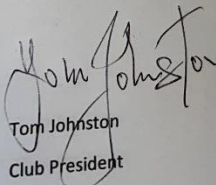 Tom Johnston
Tom Johnston
Club President